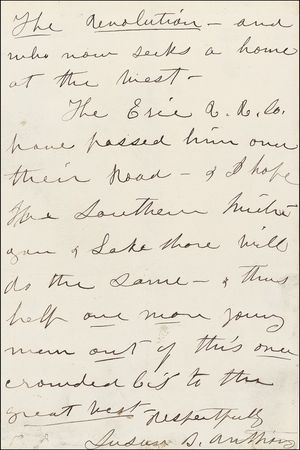 The Revolution - and
who now seeks a home
at the West -
The Erie R. R. Co.
have passed him over
their Road - & I hope
The Southern Michi
gan & Lake Shore will
do the same - & thus
help one more young
man out of this over
crowded City to the
great West
Respectfully
Susan B. Anthony